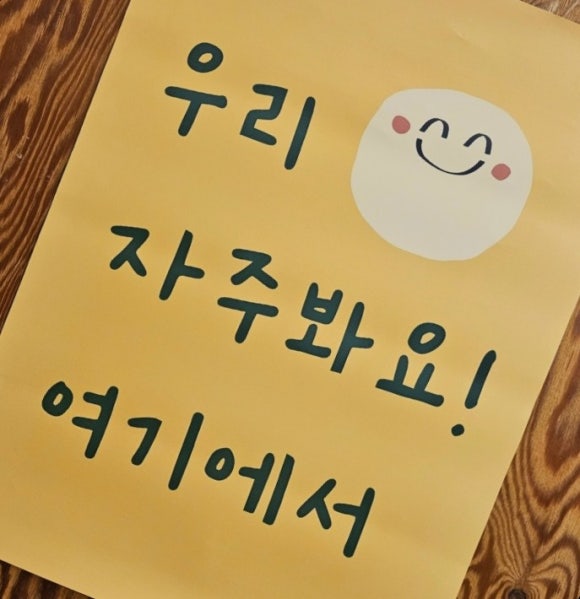 우리
자주봐요!
여기에서